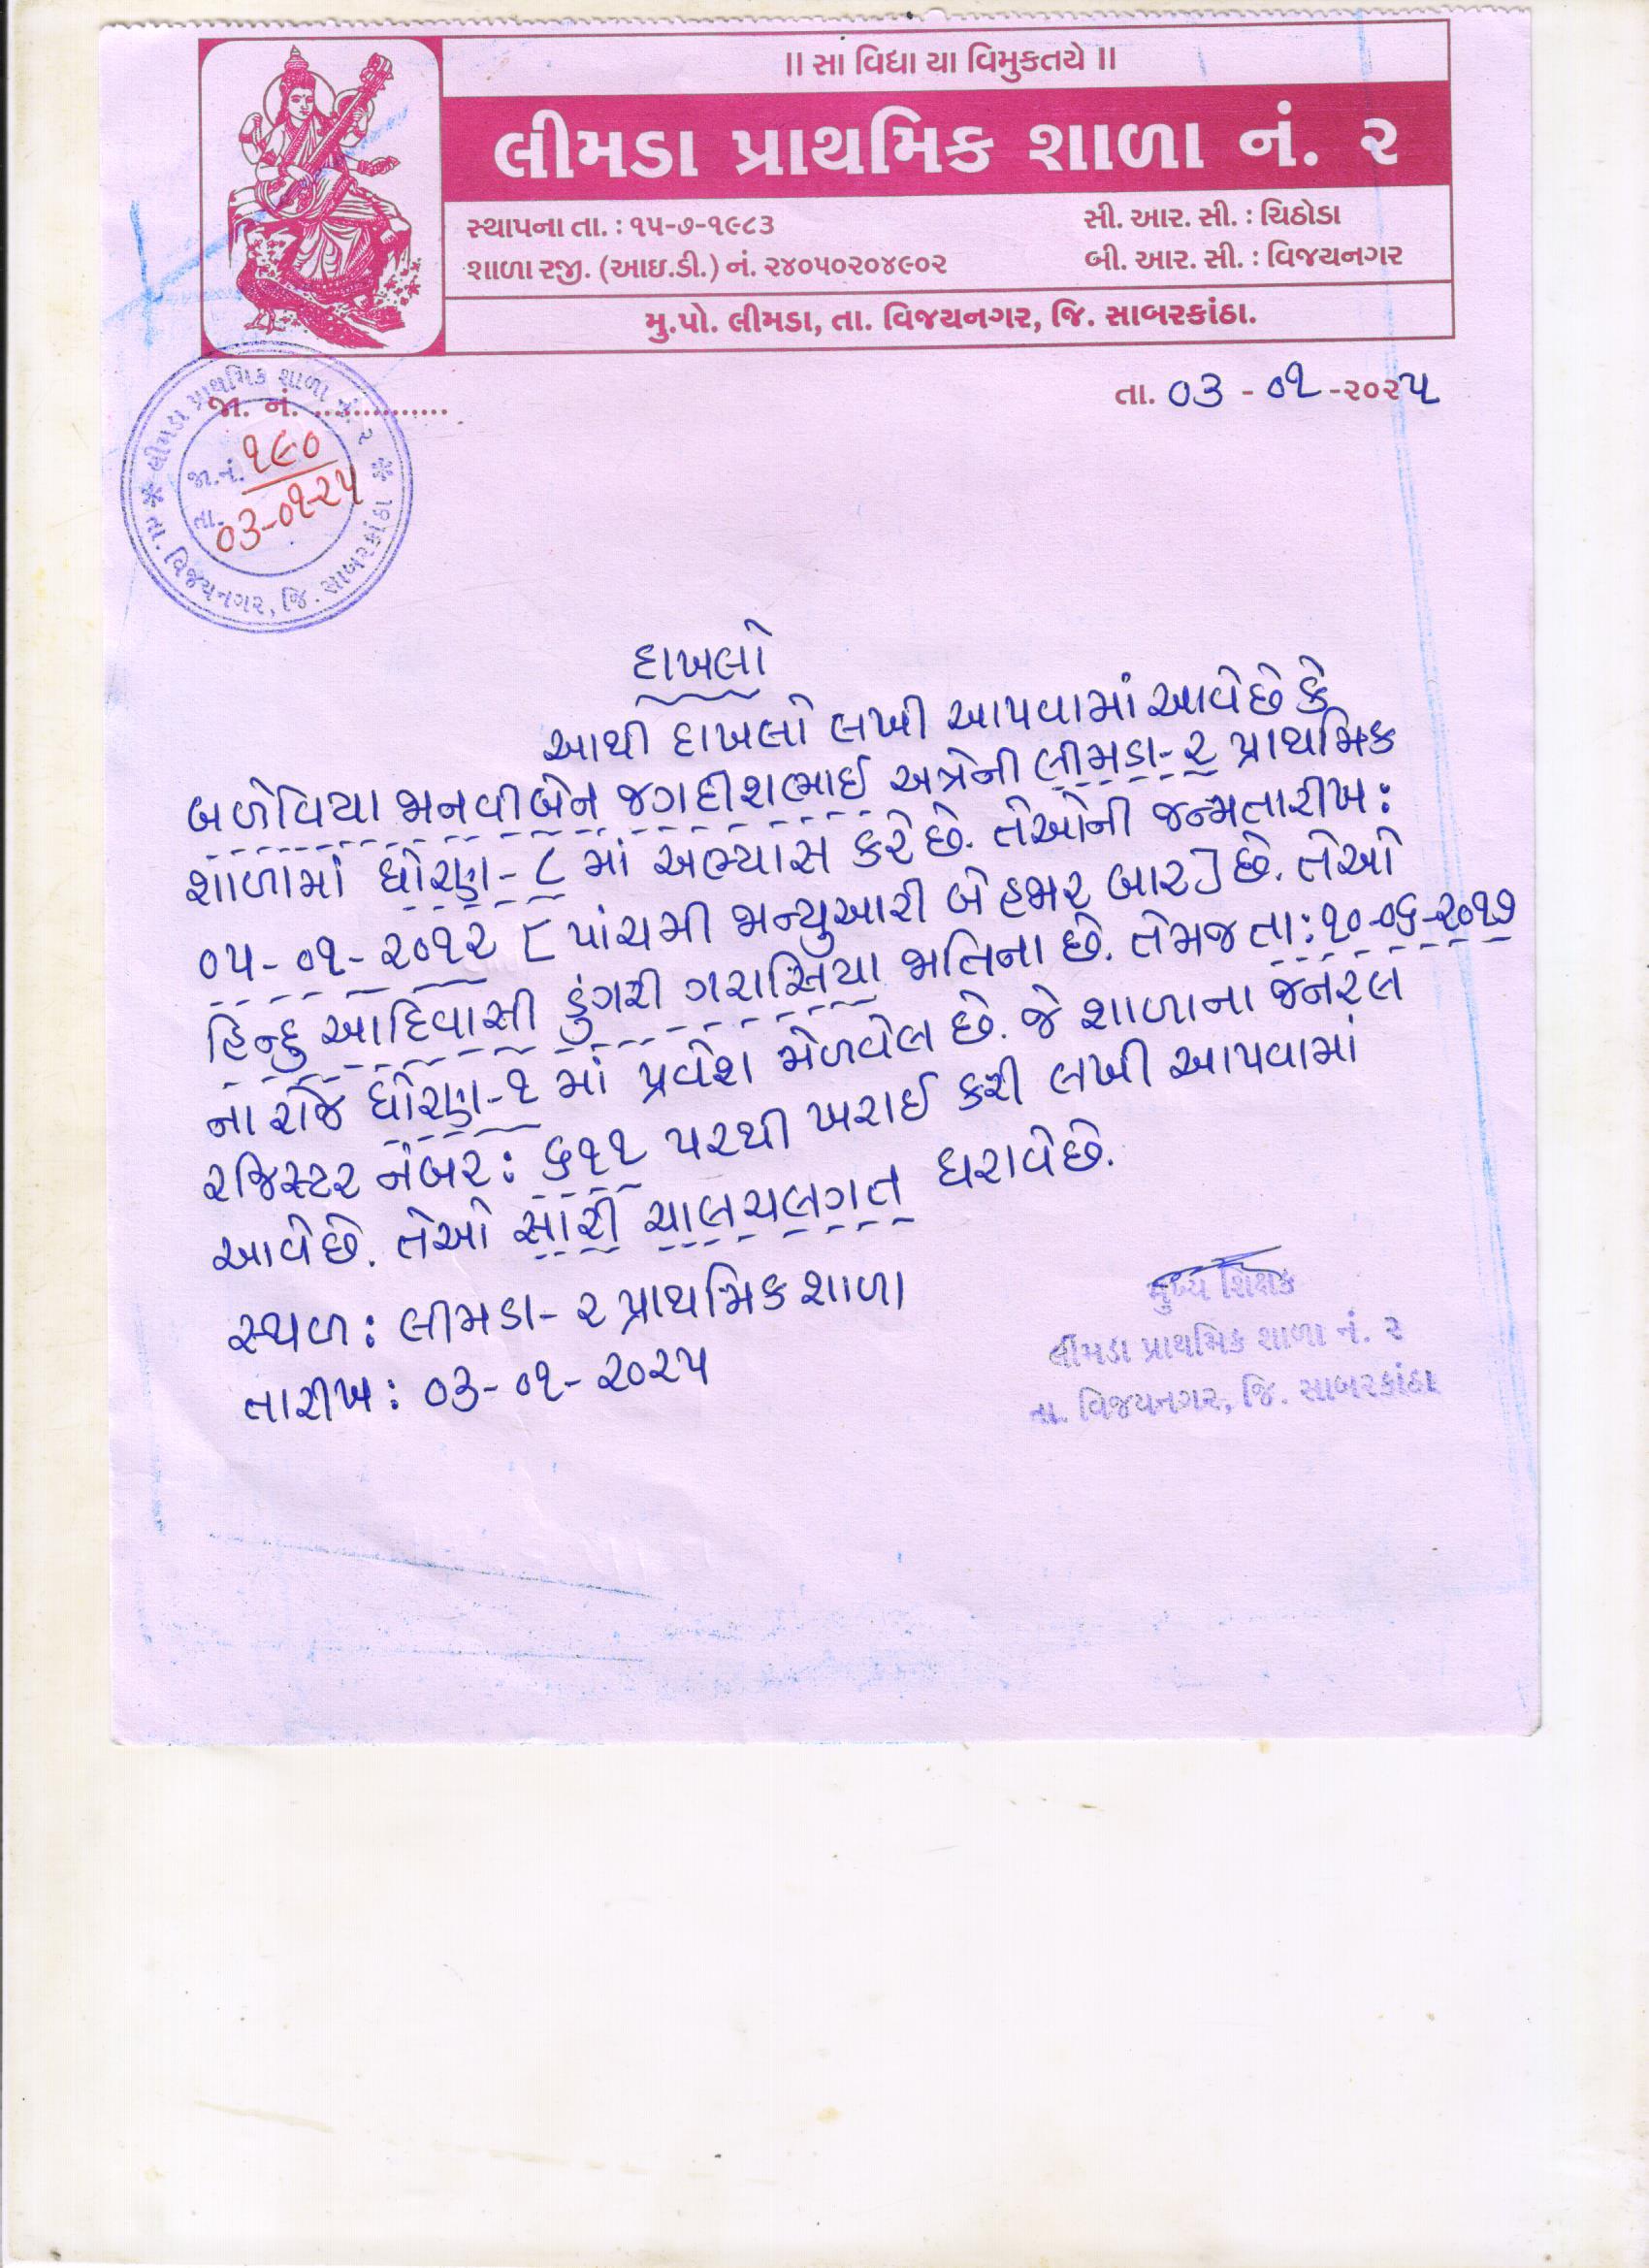 ॥ સા વિદ્યા યા વિમુક્તયે ॥
લીમડા પ્રાથમિક શાળા નં. ૨
સ્થાપના તા. : ૧૫-૭-૧૯૮૩
સી. આર. સી. : ચિઠોડા
શાળા રજી. (આઇ.ડી.) નં. ૨૪૦૫૦૨૦૪૯૦૨
બી. આર. સી. : વિજયનગર
મુ.પો. લીમડા, તા. વિજયનગર, જિ. સાબરકાંઠા.
જા. નં. .............
તા. ૦૩ - ૦૧ -૨૦૨૫
લીમડા પ્રાથમિક શાળા નં. ૨
જા.નં. ૧૯૦
તા. ૦૩-૦૧-૨૫
તા. વિજયનગર, જિ. સાબરકાંઠા
દાખલો
આથી દાખલો લખી આપવામાં આવેછે કે
બળેવિયા જાનવીબેન જગદીશભાઈ અત્રેની લીમડા-૨ પ્રાથમિક
શાળામાં ધોરણ-૮ માં અભ્યાસ કરેછે. તેઓની જન્મતારીખ:
૦૫-૦૧-૨૦૧૨ [પાંચમી જાન્યુઆરી બે હજાર બાર] છે. તેઓ
હિન્દુ આદિવાસી ડુંગરી ગરાસિયા જાતિના છે. તેમજ તા:૧૦-૦૬-૨૦૧૭
ના રોજ ધોરણ-૧ માં પ્રવેશ મેળવેલ છે. જે શાળાના જનરલ
રજિસ્ટર નંબર: ૬૧૧ પરથી ખરાઈ કરી લખી આપવામાં
આવેછે. તેઓ સારી ચાલચલગત ધરાવેછે.
સ્થળ: લીમડા-૨ પ્રાથમિક શાળા
તારીખ: ૦૩-૦૧-૨૦૨૫
મુખ્ય શિક્ષક
લીમડા પ્રાથમિક શાળા નં. ૨
તા. વિજયનગર, જિ. સાબરકાંઠા